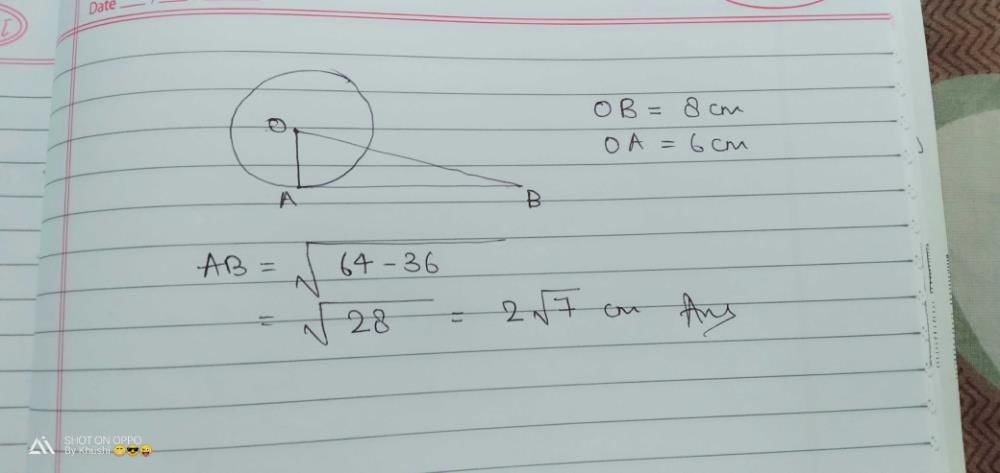 Date
O
A
B
OB = 8 cm
OA = 6 cm
AB = √64 - 36
= √28 = 2√7 cm Ans
SHOT ON OPPO
By Khushi 😁😎😜